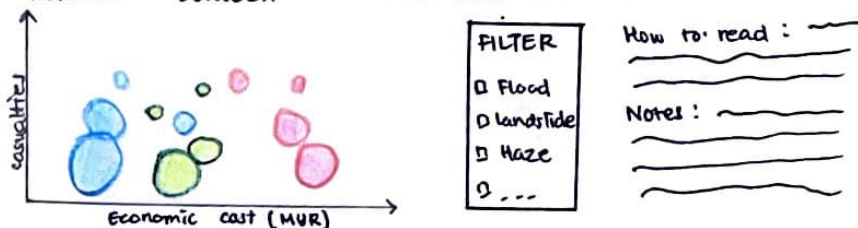 casualties
Economic cast (MUR)
FILTER
Flood
Landslide
Haze
...
How to read :
Notes :